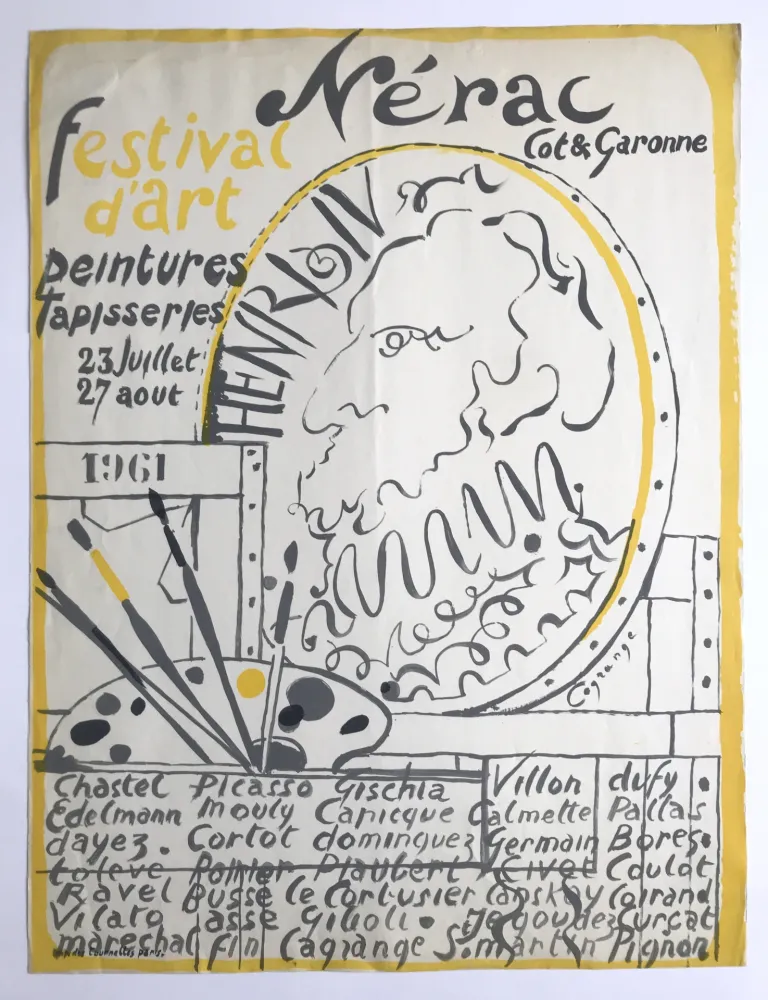 Nérac
Lot & Garonne
festival
d'art
peintures
tapisseries
23 Juillet
27 aout
HENRI IV
1961
Lagrange
Chastel Picasso Gischia Villon dufy
Edelmann Mouly Lapicque Calmette Pallas
dayez. Cortot dominguez Germain Borès
Poirier Piaubert Civet Coulot
Ravel Busse Le Corbusier Lanskoy Coirand
Vilato asse Gilioli Lurçat
maréchal fin Lagrange St. martin Pignon
tournelles paris.